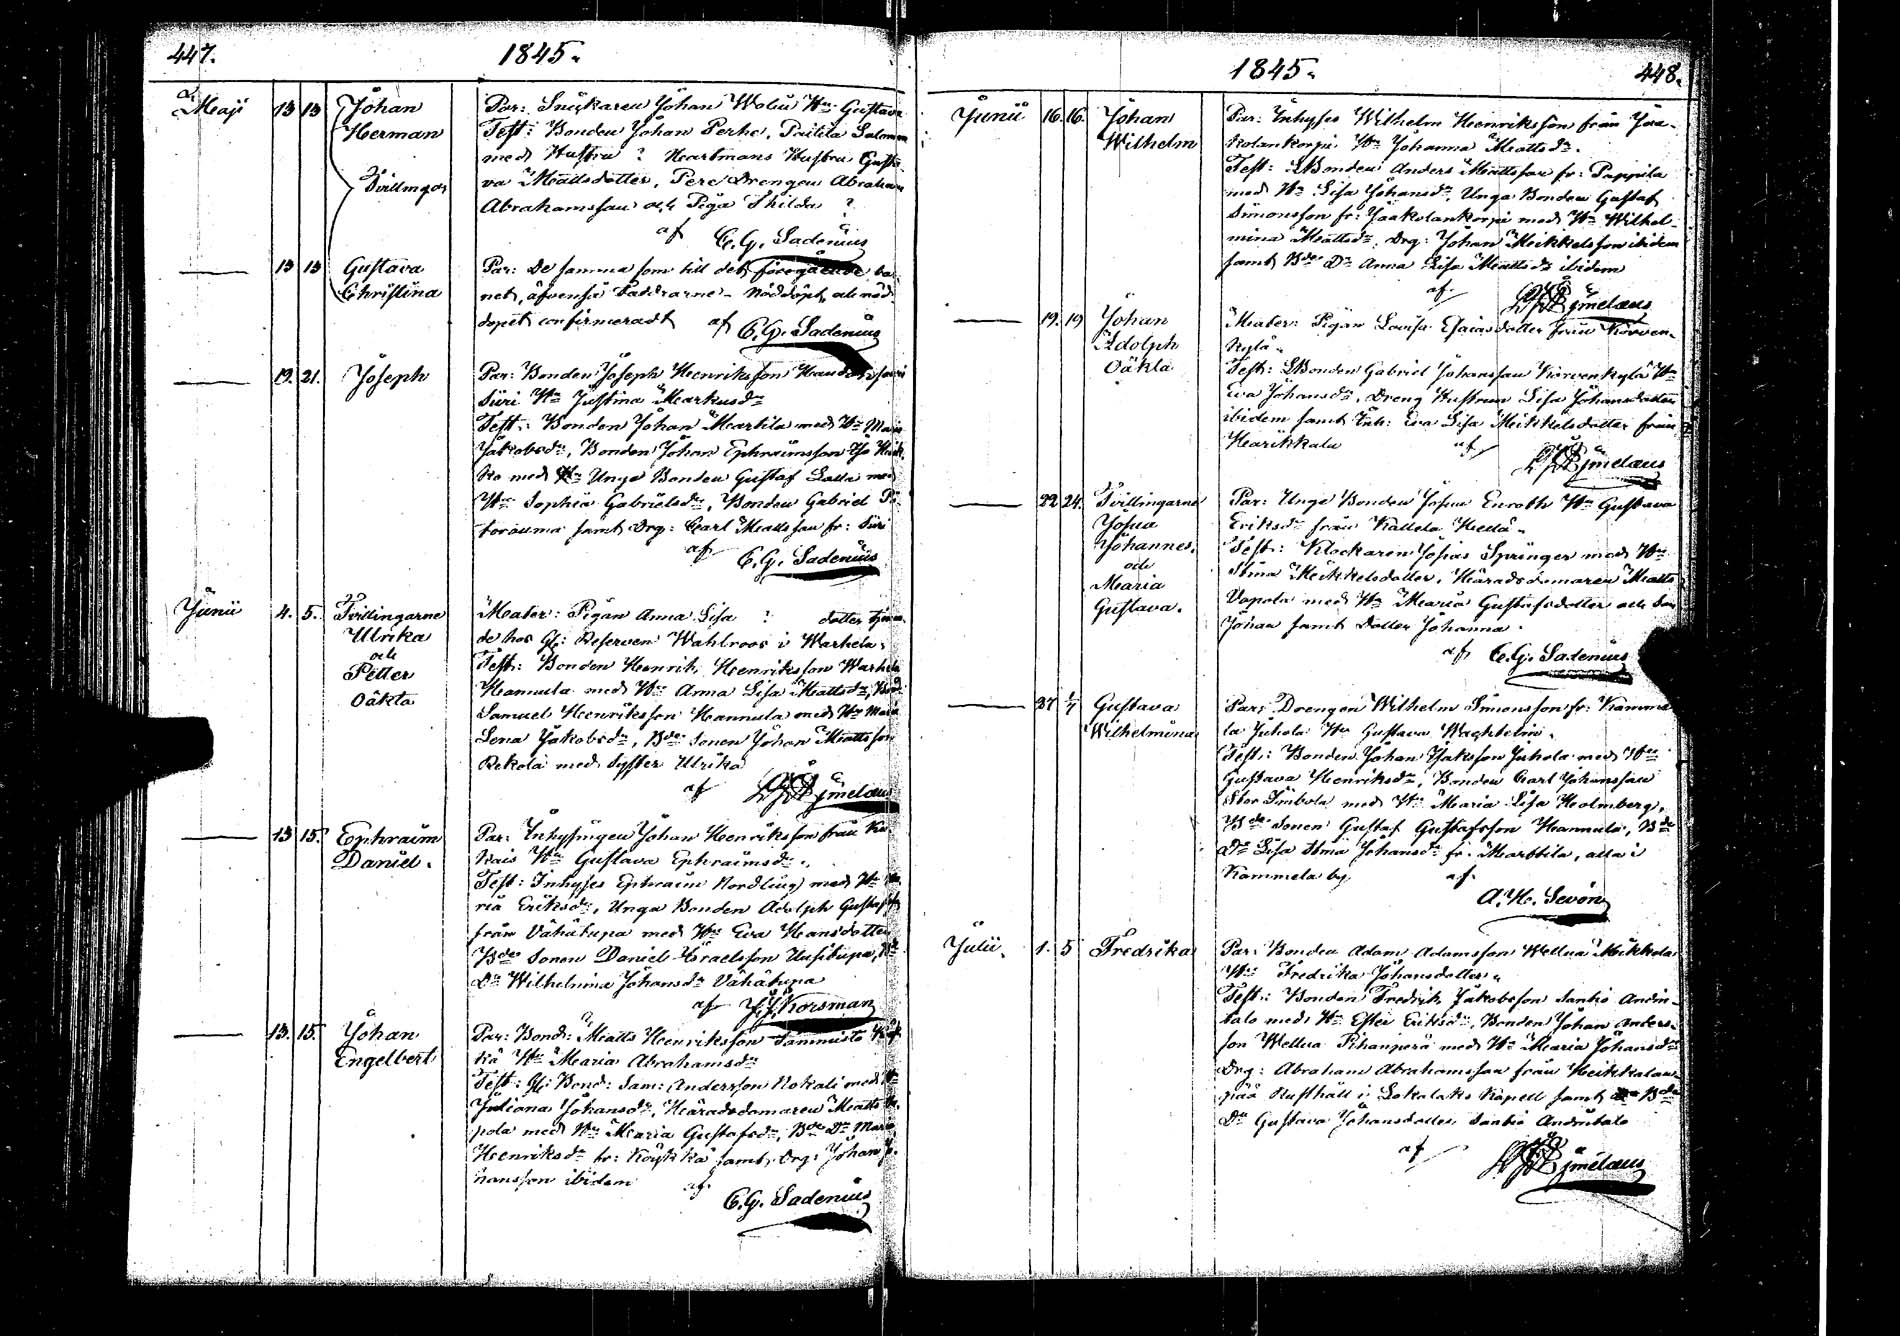 447.
1845.
Maji 13 13 Johan Herman
Tvillingar
Par: Snickaren Johan Walin Hu Gustava
Test: Bonden Johan Perho, Salomon
med Hustru ? Hartmans Hustru Gusta-
va Mattsdotter, Pere Drengen Abraham
Abrahamsson och Piga Thilda ?
af C. G. Sadenius
13 13 Gustava Christina
Par: De samma som till det föregående bar-
net, äfvenså faddrarne - Nöddöpt, och nöd-
dopet confirmeradt af C. G. Sadenius
19. 21. Joseph
Par: Bonden Joseph Henriksson
Siiri Hu Justina Markusdr
Test: Bonden Johan Marttila med Hu Maja
Jakobsdr, Bonden Johan Ephraimsson
ko med Hu Unga Bonden Gustaf Lalla med
Hu Sophia Gabrielsdr, Bonden Gabriel
samt Drg: Carl Mattsson fr: Siiri
af C. G. Sadenius
Junii 4. 5. Tvillingarne Ulrika och Petter Oäkta
Mater: Pigan Anna Lisa ? dotter tjenan-
de hos Gl: Reserven Wahlroos i Warhela.
Test: Bonden Henrik Henriksson Warhela
Hannula med Hu Anna Lisa Mattsdr,
Samuel Henriksson Hannula med Hu Maria
Lena Jakobsdr, Bde Sonen Johan Mattsson
Rekola med Syster Ulrika
af
13 15. Ephraim Daniel.
Par: Inhysingen Johan Henriksson från
Hu Gustava Ephraimsdr.
Test: Inhyses Ephraim Nordling med Hu Ma-
ria Eriksdr, Unga Bonden Adolph Gustafsson
från Vähätupa med Hu Eva Hansdotter
Bde Sonen Daniel Israelsson Uusitupa, Bde
Dr Wilhelmina Johansdr Vähätupa
af J. J. Korsman
13. 15. Johan Engelbert
Par: Bond: Matts Henriksson Tammisto
kä Hu Maria Abrahamsdr
Test: Gl: Bond: Sam: Andersson Kokali med Hu
Juliana Johansdr, Häradsdomaren Matts Va-
pola med Hu Maria Gustafsdr, Bde Dr Maria
Henriksdr fr: Köykkä samt Drg: Johan Jo-
hansson ibidem af
C. G. Sadenius
1845.
448.
Junii 16. 16. Johan Wilhelm
Par: Inhyses Wilhelm Henriksson från Jaa-
kolankorpi Hu Johanna Mattsdr.
Test: Bonden Anders Mattsson fr: Pappila
med Hu Lisa Johansdr, Unga Bonden Gustaf
Simonsson fr: Jaakolankorpi med Hu Wilhel-
mina Mattsdr, Drg: Johan Mikkelsson ibidem
samt Bde Dr Anna Lisa Mattsdr ibidem
af
19. 19 Johan Adolph Oäkta
Mater: Pigan Lovisa Esaiasdotter från Korven-
kylä.
Test: Bonden Gabriel Johansson Korvenkylä Hu
Eva Johansdr, Dreng Hustrun Lisa Johansdotter
ibidem samt Inh: Eva Lisa Mikkelsdotter från
Harikkala af
22 24. Tvillingarne Josua Johannes. och Maria Gustava.
Par: Unge Bonden Josua Enroth Hu Gustava
Eriksdr från Kallela Hellä.
Test: Klockaren Josias Springer med Hu
Stina Mikkelsdotter, Häradsdomaren Matts
Vapola med Hu Maria Gustafsdotter och Son
Johan samt Dotter Johanna.
af C. G. Sadenius
27 1/7 Gustava Wilhelmina
Par: Drengen Wilhelm Simonsson fr: Kamme-
la Juhola Hu Gustava Waghelm.
Test: Bonden Johan Isaksson Juhola med Hu
Gustava Henriksdr, Bonden Carl Johansson
Stor Simbola med Hu Maria Lisa Holmberg,
Bde Sonen Gustaf Gustafsson Hannula, Bde
Dr Lisa Stina Johansdr fr: Marttila, alla i
Kammela by. af
A. H. Sevon
Julii. 1. 5 Fredrika
Par: Bonden Adam Adamsson Wellua Mikkola
Hu Fredrika Johansdotter.
Test: Bonden Fredrik Jakobsson Santio Andin-
talo med Hu Ester Eriksdr, Bonden Johan Anders-
son Wellua Pihanperä med Hu Maria Johansdr
Drg: Abraham Abrahamsson från Heikkolan-
pää Rusthåll i Lokalaks Kapell samt Bde
Dr Gustava Johansdotter Santio Andintalo
af